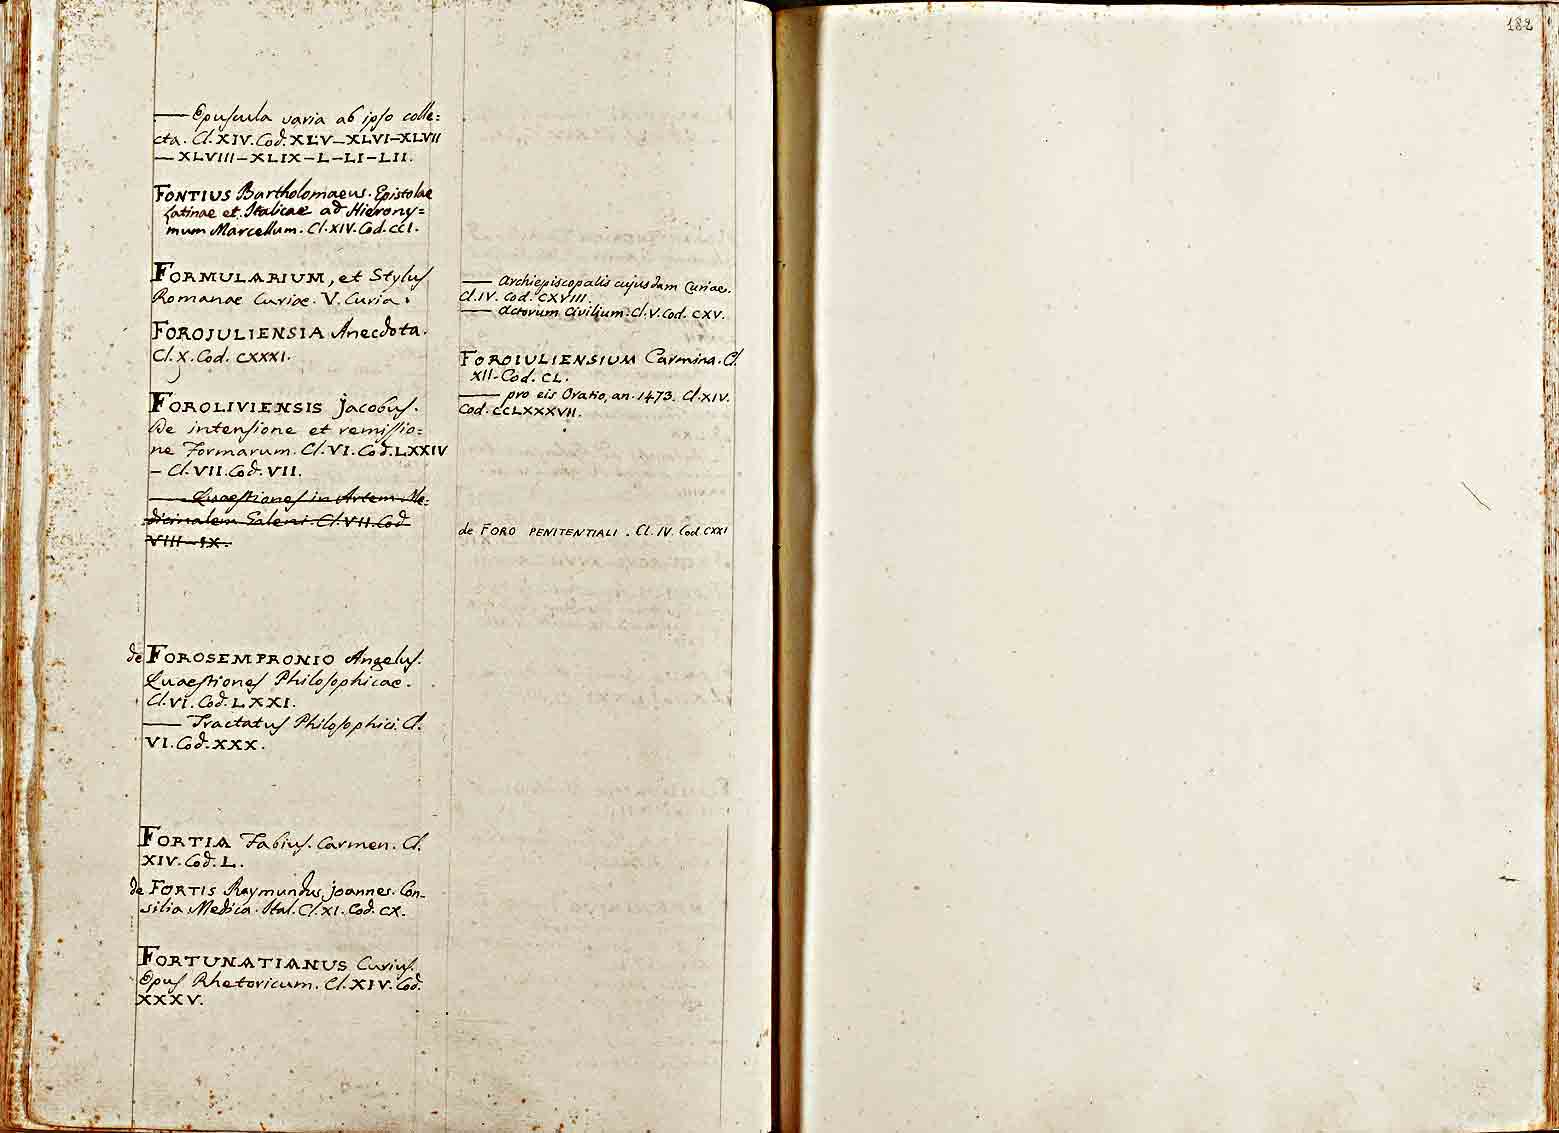 — Opuscula varia ab ipso colle=
cta. Cl. XIV. Cod. XLV — XLVI — XLVII
— XLVIII — XLIX — L — LI — LII.
FONTIUS Bartholomaeus. Epistolae
Latinae et Italicae ad Hierony=
mum Marcellum. Cl. XIV. Cod. CCI.
FORMULARIUM, et Stylus
Romanae Curiae. V. Curia.
FOROJULIENSIA Anecdota.
Cl. X. Cod. CXXXI.
FOROLIVIENSIS Jacobus.
De intensione et remissio=
ne Formarum. Cl. VI. Cod. LXXIV
— Cl. VII. Cod. VII.
— Quaestiones in Artem Me=
dicinalem Galeni. Cl. VII. Cod
VIII — IX.
de FOROSEMPRONIO Angelus.
Quaestiones Philosophicae.
Cl. VI. Cod. LXXI.
— Tractatus Philosophici. Cl.
VI. Cod. XXX.
FORTIA Fabius. Carmen. Cl.
XIV. Cod. L.
de FORTIS Raymundus Joannes. Con=
silia Medica. Ital. Cl. XI. Cod. CX.
FORTUNATIANUS Curius.
Opus Rhetoricum. Cl. XIV. Cod.
XXXV.
— Archiepiscopalis cujusdam Curiae.
Cl. IV. Cod. CXVIII.
— Actorum Civilium. Cl. V. Cod. CXV.
FOROIULIENSIUM Carmina. Cl.
XII. Cod. CL.
— pro eis Oratio, an. 1473. Cl. XIV.
Cod. CCLXXXVII.
de FORO PENITENTIALI. Cl. IV. Cod. CXXI
182